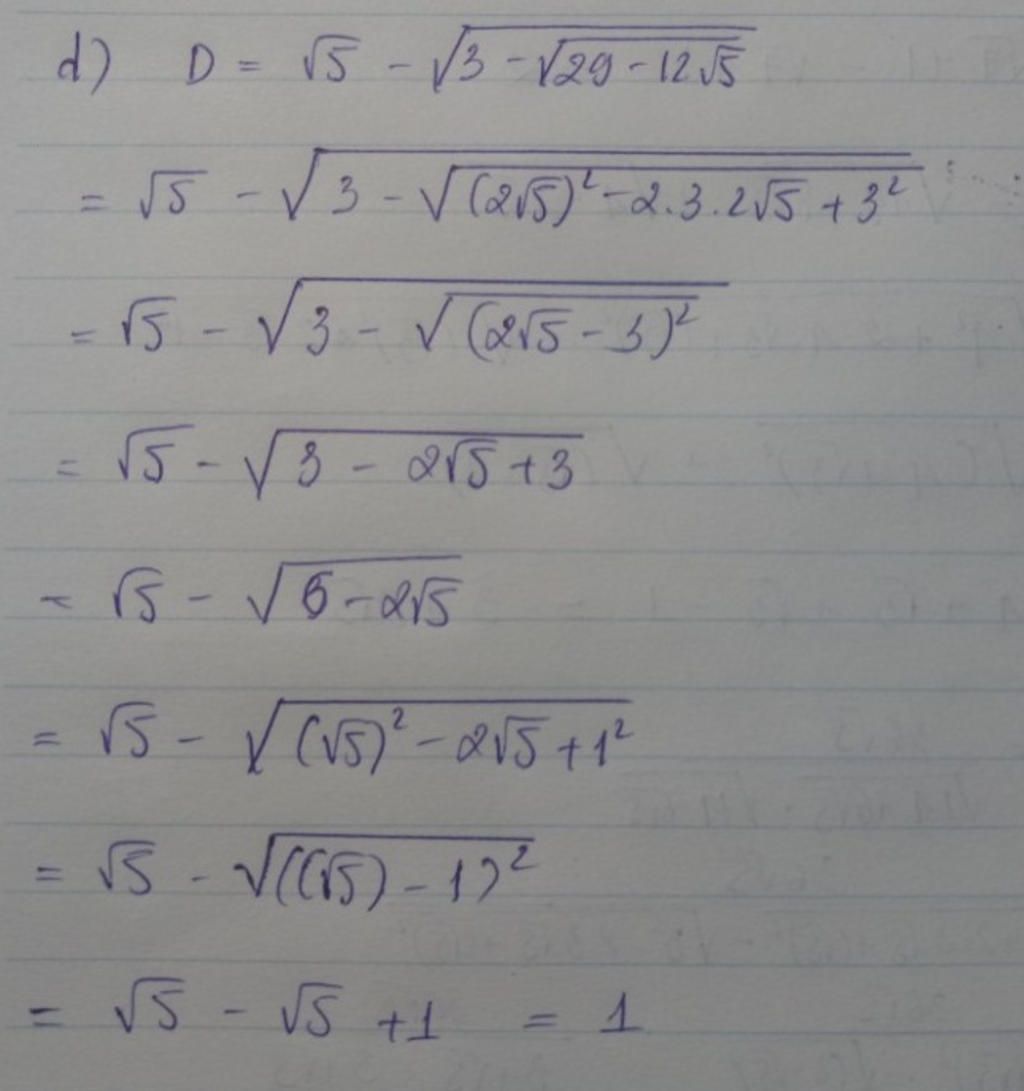 d) D = √5 - √(3 - √(29 - 12√5))
= √5 - √(3 - √((2√5)² - 2.3.2√5 + 3²))
= √5 - √(3 - √((2√5 - 3)²))
= √5 - √(3 - 2√5 + 3)
= √5 - √(6 - 2√5)
= √5 - √((√5)² - 2√5 + 1²)
= √5 - √(((√5) - 1)²)
= √5 - √5 + 1 = 1